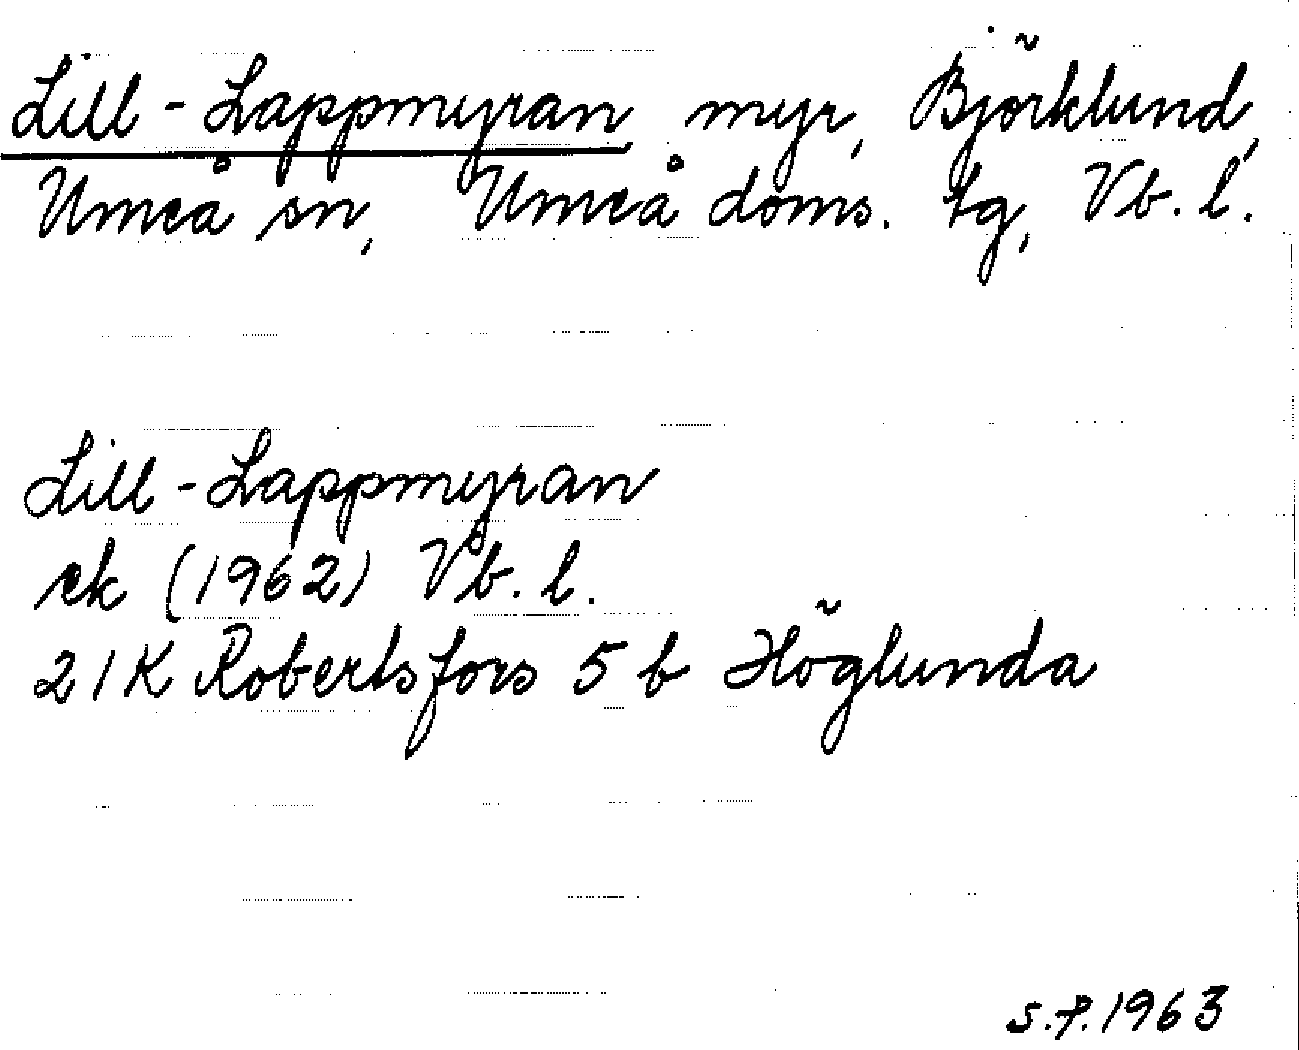 Lill-Lappmyran, myr, Björklund,
Umeå sn, Umeå doms. tg, Vb. l.
Lill-Lappmyran
ek (1962) Vb. l.
21K Robertsfors 5 b Höglunda
s.f. 1963